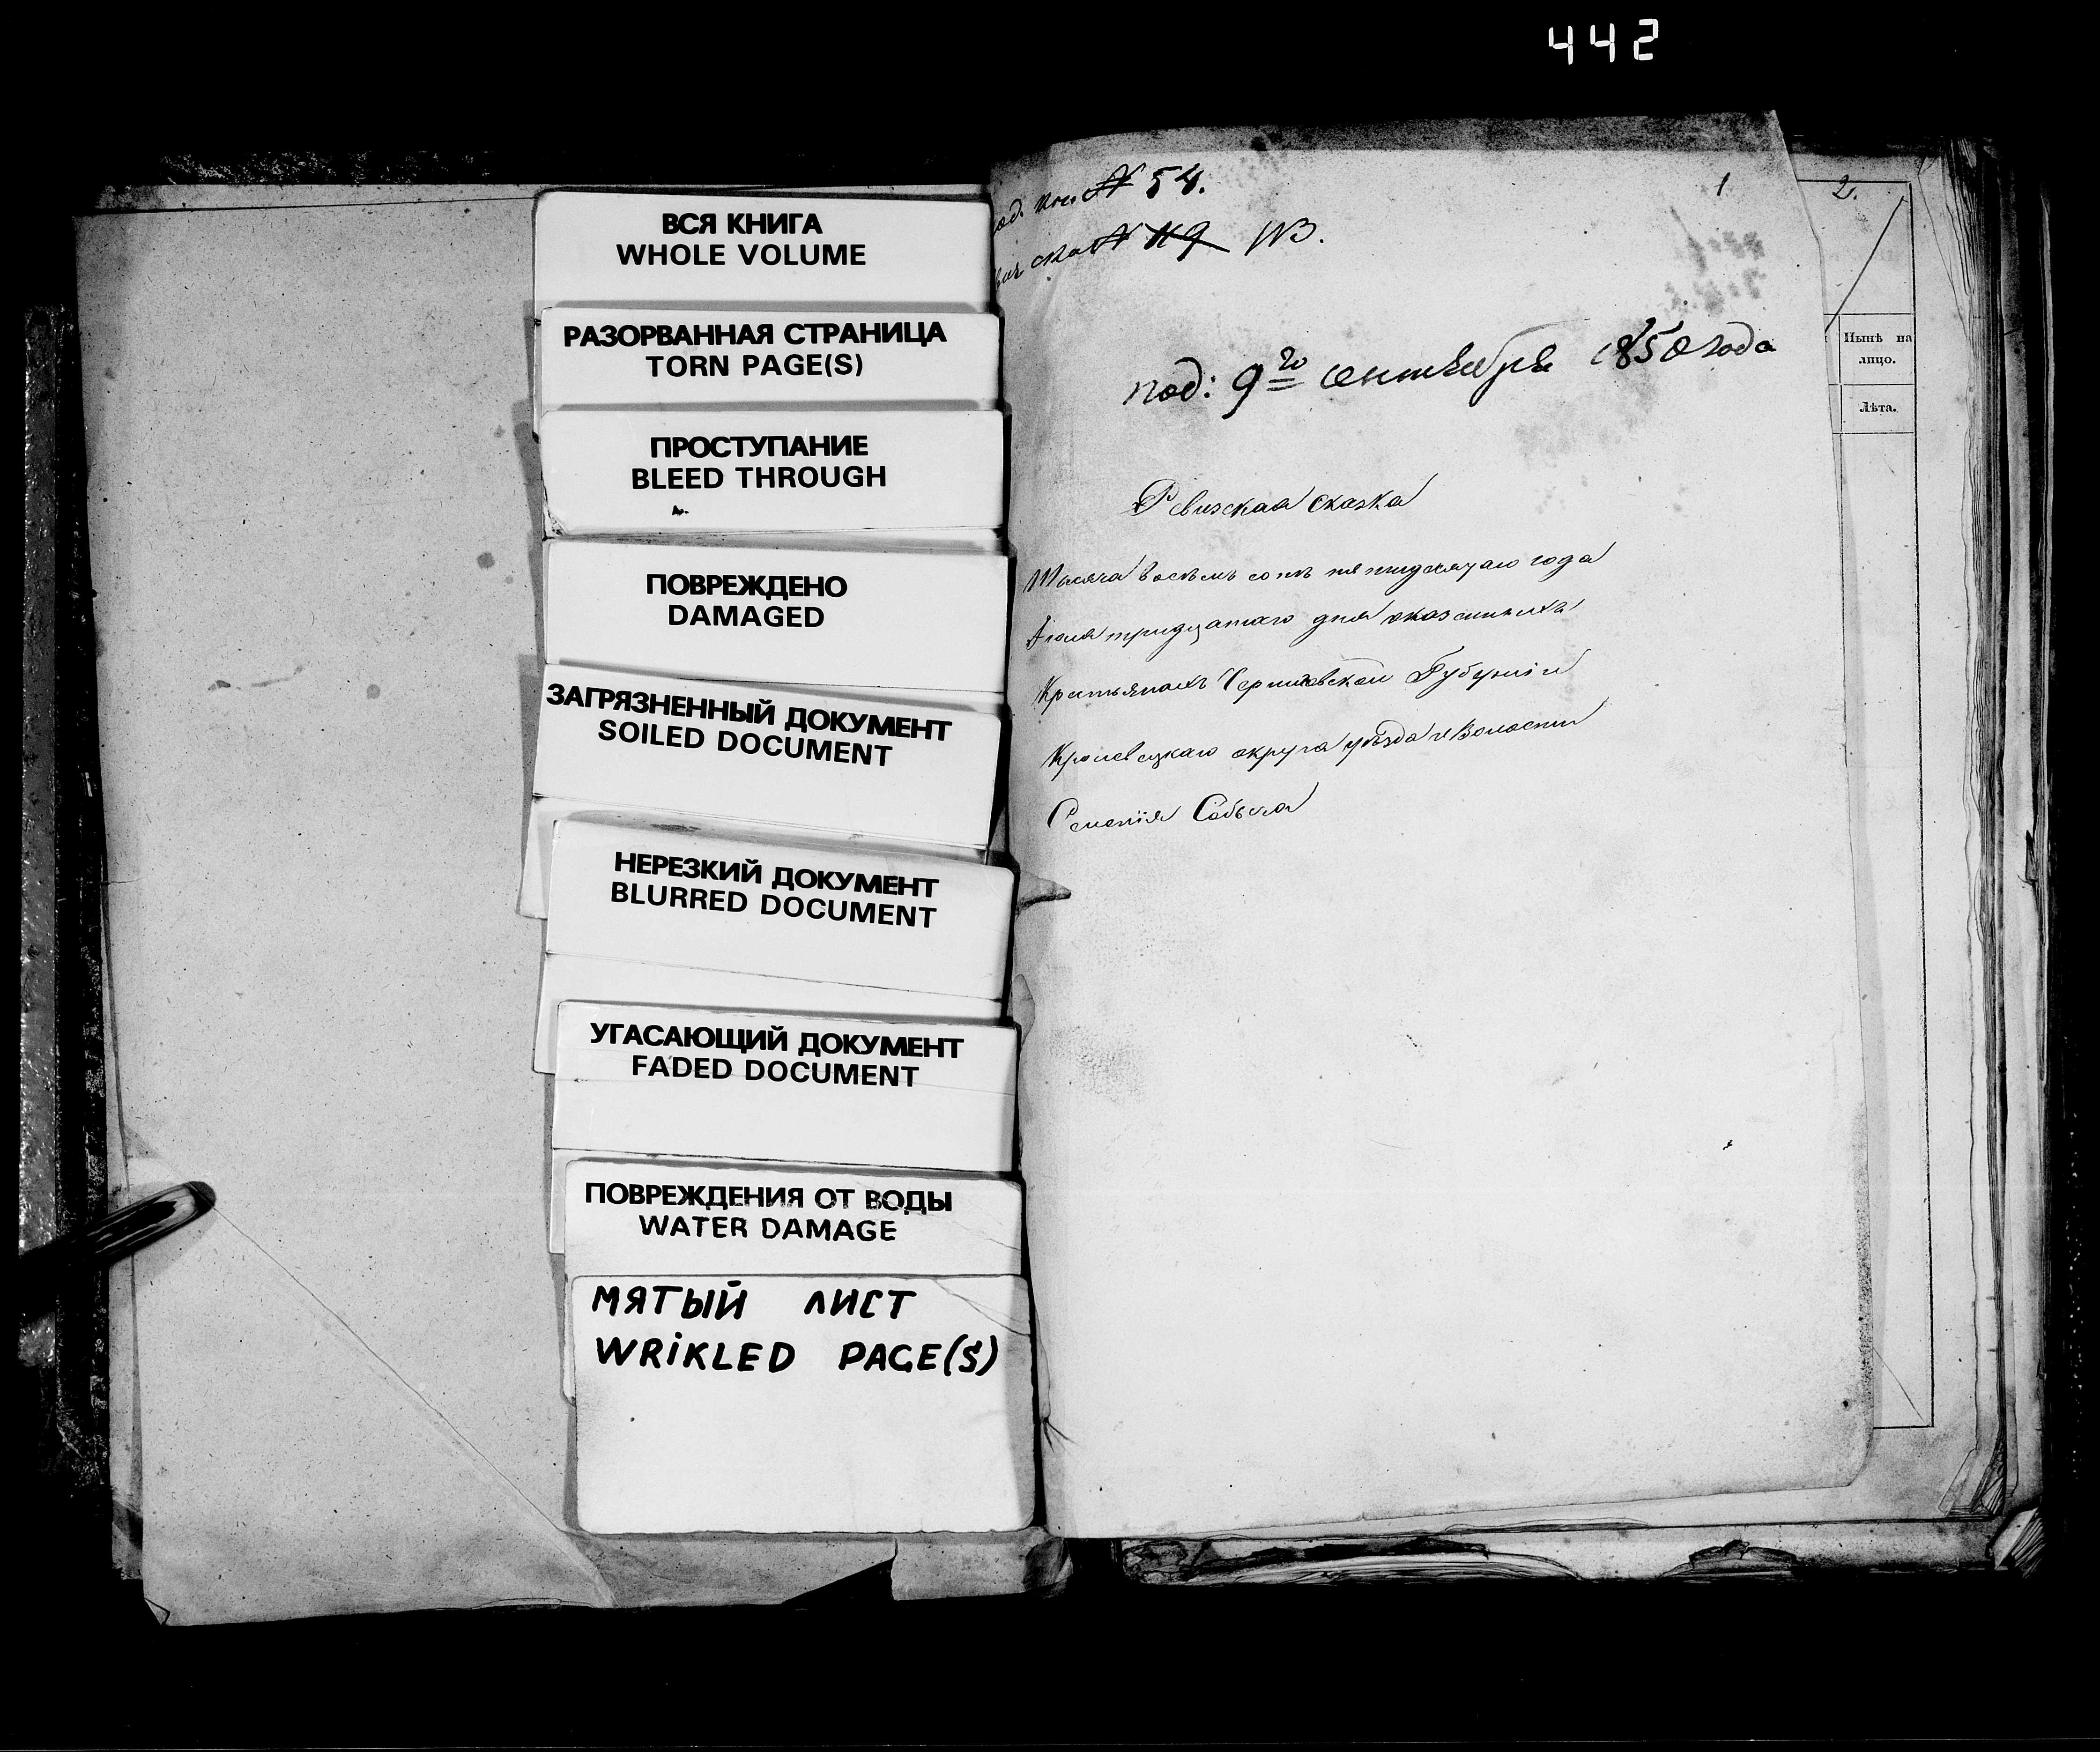 442
ВСЯ КНИГА
WHOLE VOLUME
РАЗОРВАННАЯ СТРАНИЦА
TORN PAGE(S)
ПРОСТУПАНИЕ
BLEED THROUGH
ПОВРЕЖДЕНО
DAMAGED
ЗАГРЯЗНЕННЫЙ ДОКУМЕНТ
SOILED DOCUMENT
НЕРЕЗКИЙ ДОКУМЕНТ
BLURRED DOCUMENT
УГАСАЮЩИЙ ДОКУМЕНТ
FADED DOCUMENT
ПОВРЕЖДЕНИЯ ОТ ВОДЫ
WATER DAMAGE
МЯТЫЙ ЛИСТ
WRiKLED PAGE(S)
№ 54.
№
1
под: 9го сентября 1850 года
Ревизская сказка
Тысяча восемь сотъ пятидесятаго года
Іюля тридцатаго дня
Крестьянахъ Черниговской Губерніи
Кролевецкаго округа уѣзда и Волости
2.
Нынѣ на
лицо.
Лѣта.